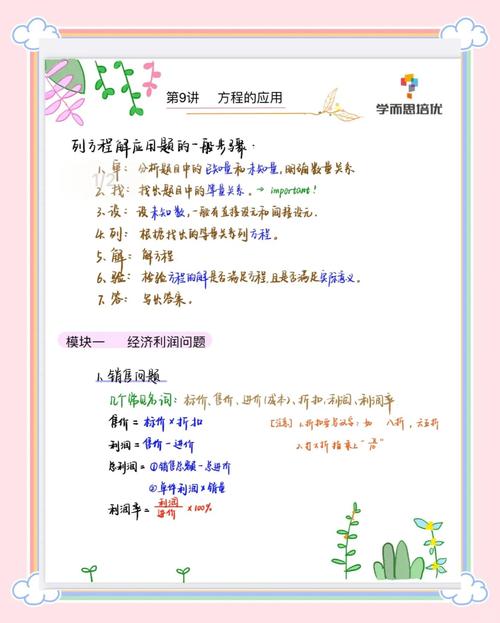 第9讲 方程的应用
学而思培优
列方程解应用题的一般步骤：
1. 审： 分析题目中的已知量和未知量，明确数量关系
1/2
2. 找： 找出题目中的等量关系。→ important！
3. 设： 设未知数，一般有直接设元和间接设元.
4. 列： 根据找出的等量关系列方程。
5. 解： 解方程
6. 验： 检验方程的解是否满足方程，且是否满足实际意义。
7. 答： 写出答案。
模块一 经济利润问题
1. 销售问题
几个常用名词：标价、售价、进价(成本)、折扣、利润、利润率
售价 = 标价 × 折扣 [注意] 1.折扣要写汉字：如 八折，六五折
利润 = 售价 - 进价 2.打x折 指乘上“x/10”
总利润 = ①销售总额 - 总进价
②单件利润 × 销量
利润率 = 利润/进价 × 100%